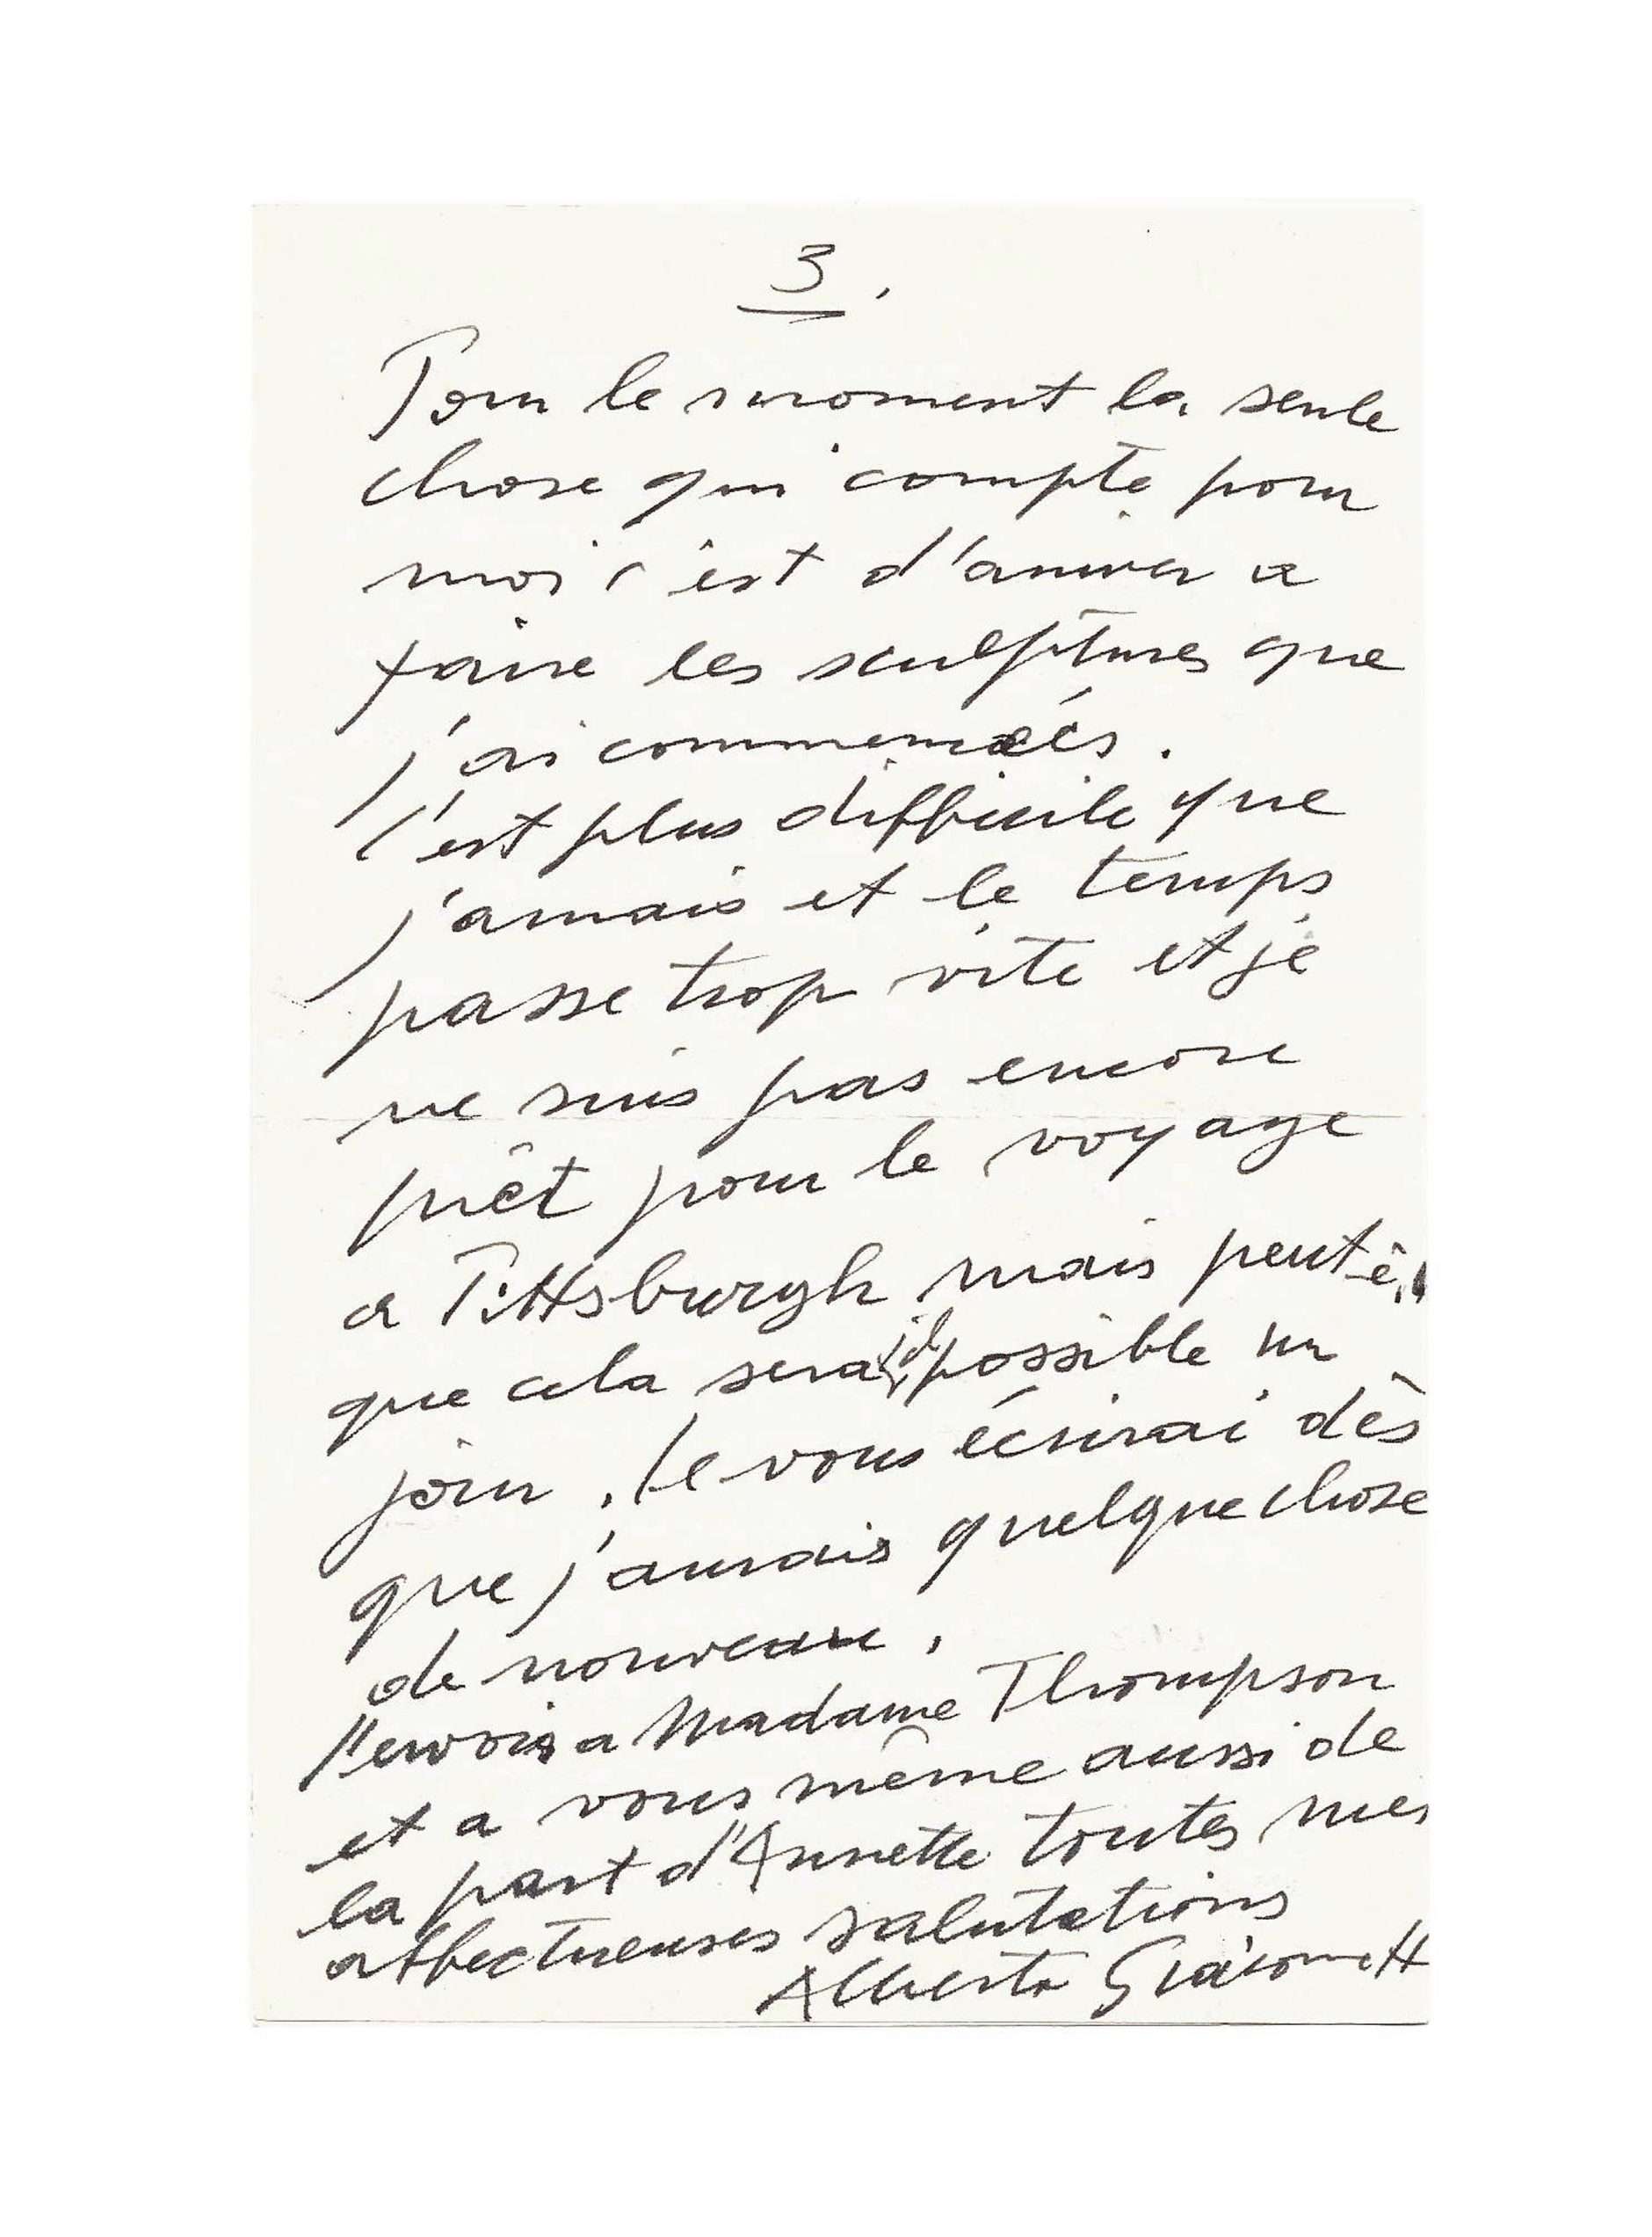 3.
Pour le moment la seule
chose qui compte pour
moi c'est d'arriver a
faire les sculptures que
j'ai commencées.
C'est plus difficile que
j'amais et le temps
passe trop vite et je
ne suis pas encore
prêt pour le voyage
a Pittsburgh mais peut
que cela sera possible un
jour. Je vous écrirai dès
que j'aurais quelque chose
de nouveau.
J'envois a Madame Thompson
et a vous même aussi de
la part d'Annette toutes mes
affectueuses salutations
Alberto Giacometti